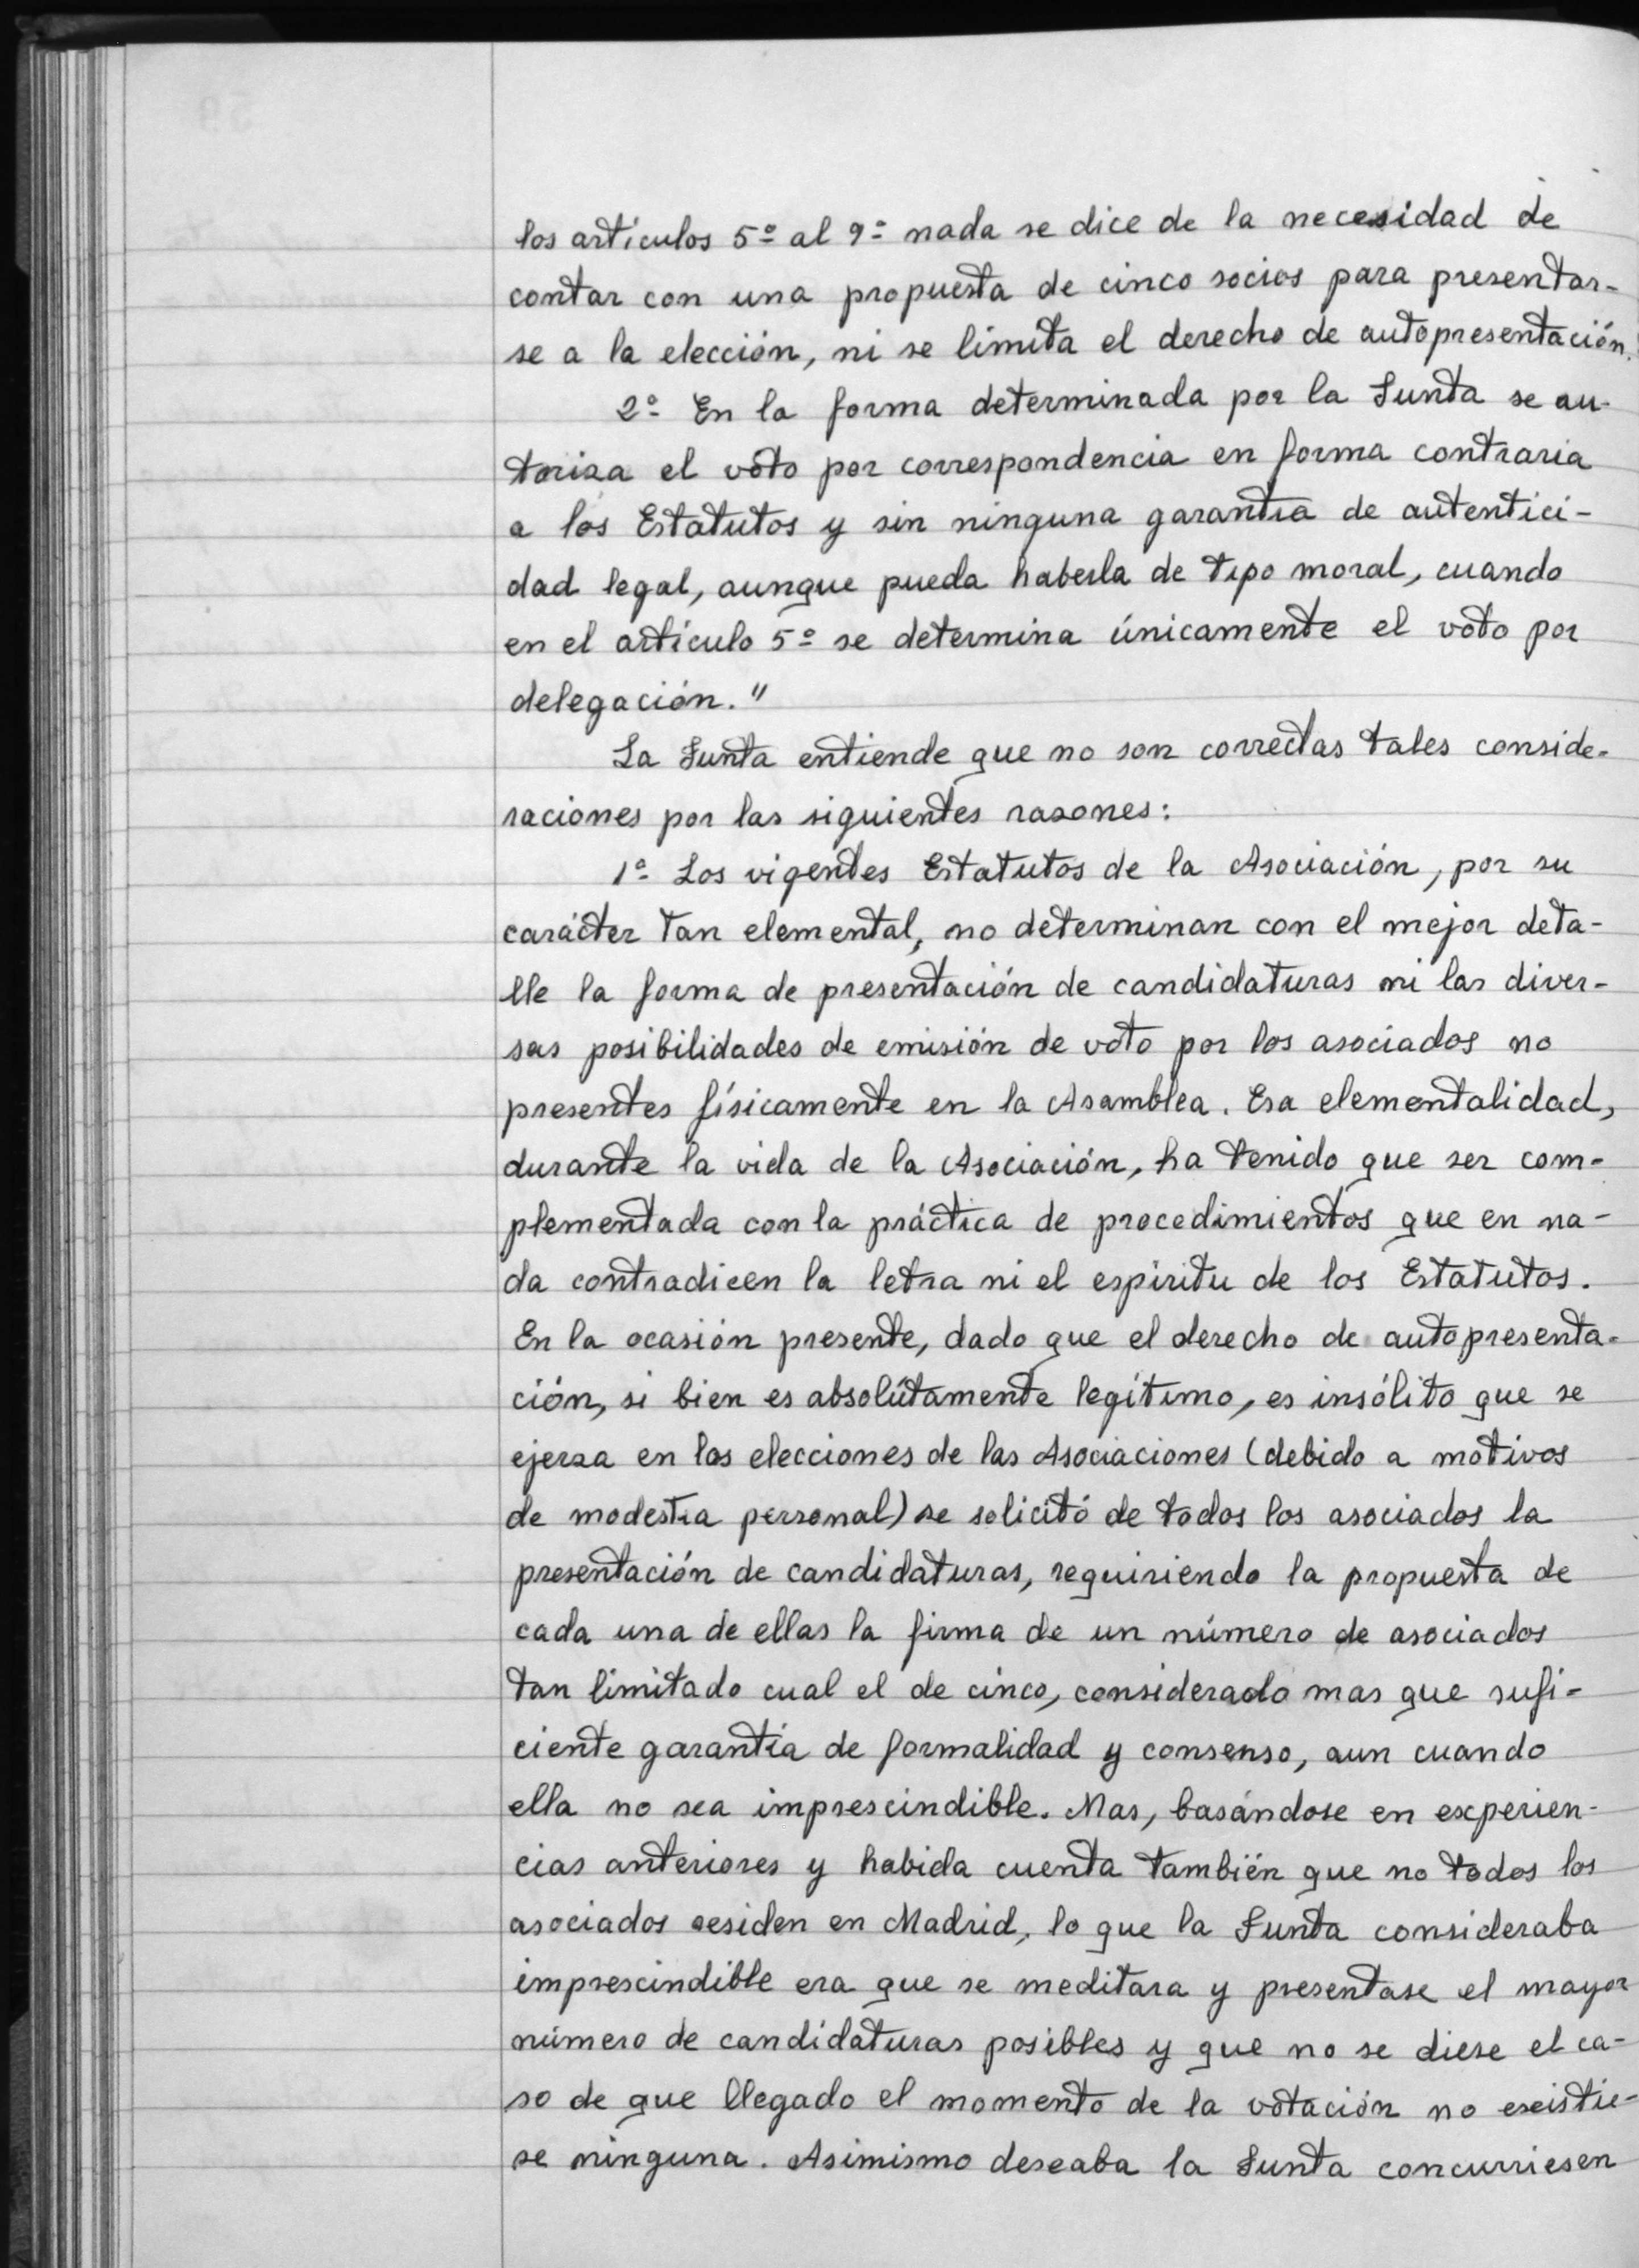 los artículos 5º al 9º nada se dice de la necesidad de
contar con una propuesta de cinco socios para presentar-
se a la elección, ni se limita el derecho de autopresentación.
2º En la forma determinada por la Junta se au-
toriza el voto por correspondencia en forma contraria
a los Estatutos y sin ninguna garantía de autentici-
dad legal, aunque pueda haberla de tipo moral, cuando
en el artículo 5º se determina únicamente el voto por
delegación."
La Junta entiende que no son correctas tales conside-
raciones por las siguientes razones:
1º Los vigentes Estatutos de la Asociación, por su
carácter tan elemental, no determinan con el mejor deta-
lle la forma de presentación de candidaturas ni las diver-
sas posibilidades de emisión de voto por los asociados no
presentes físicamente en la Asamblea. Esa elementalidad,
durante la vida de la Asociación, ha tenido que ser com-
plementada con la práctica de procedimientos que en na-
da contradicen la letra ni el espíritu de los Estatutos.
En la ocasión presente, dado que el derecho de autopresenta-
ción, si bien es absolutamente legítimo, es insólito que se
ejerza en las elecciones de las Asociaciones (debido a motivos
de modestia personal) se solicitó de todos los asociados la
presentación de candidaturas, requiriendo la propuesta de
cada una de ellas la firma de un número de asociados
tan limitado cual el de cinco, considerado mas que sufi-
ciente garantía de formalidad y consenso, aun cuando
ella no sea imprescindible. Mas, basándose en experien-
cias anteriores y habida cuenta también que no todos los
asociados residen en Madrid, lo que la Junta consideraba
imprescindible era que se meditara y presentase el mayor
número de candidaturas posibles y que no se diese el ca-
so de que llegado el momento de la votación no existie-
se ninguna. Asimismo deseaba la Junta concurriesen